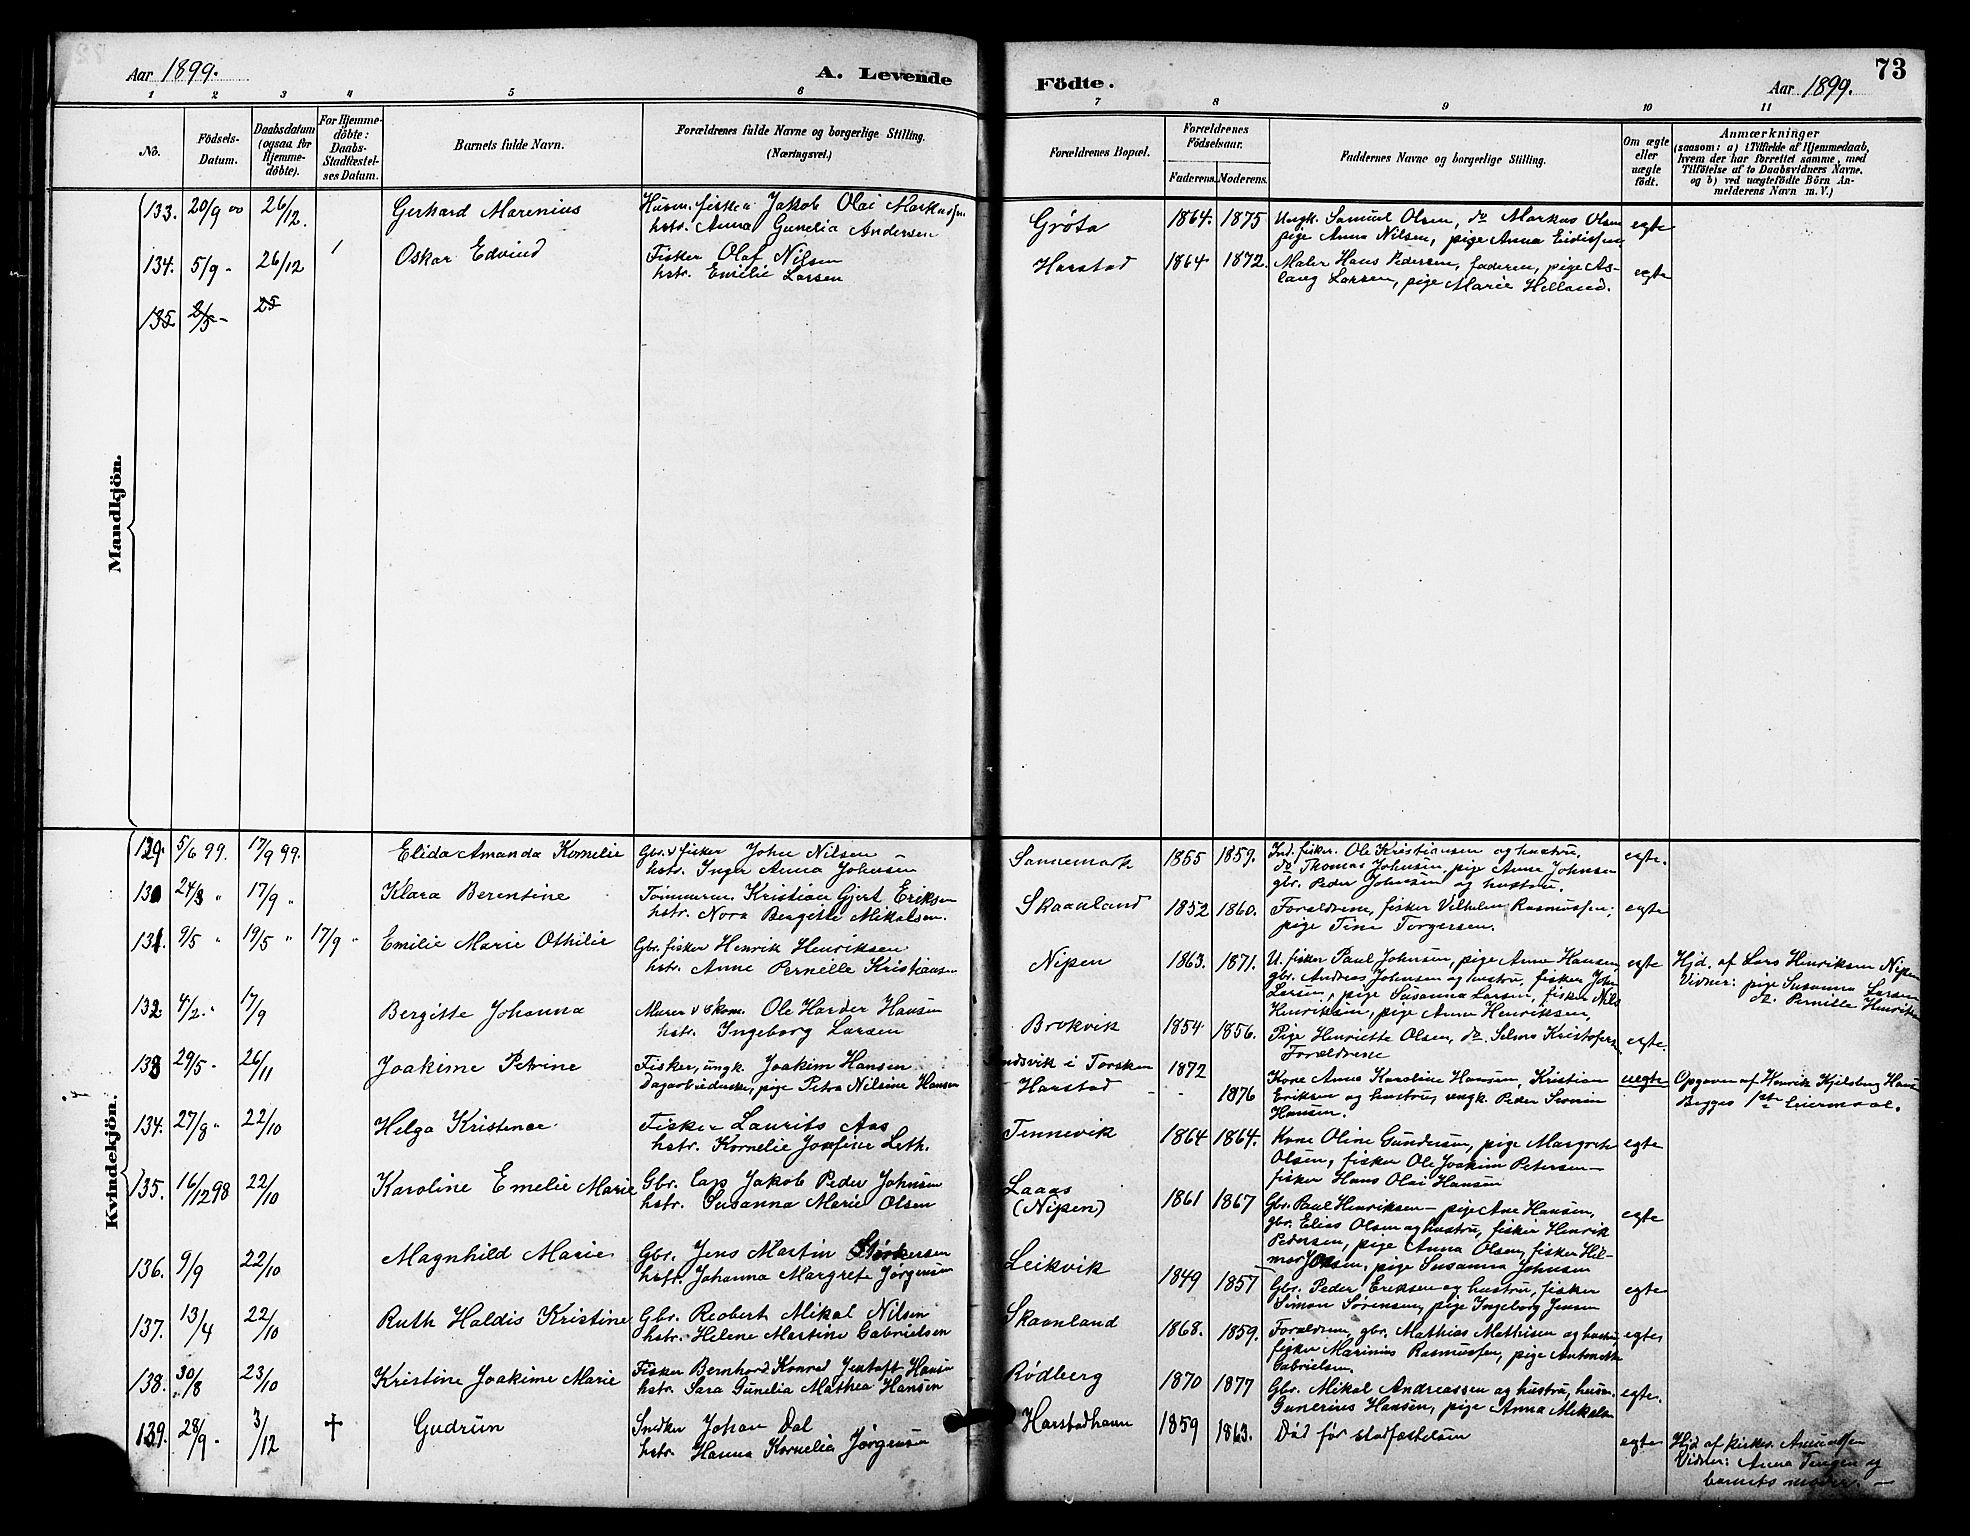 Aar 1899.
A. Levende Födte.
Aar 1899.
73
1 2 3 4 5 6 7 8 9 10 11
No.
Födsels-Datum.
Daabsdatum (ogsaa for Hjemme-döbte).
For Hjemme-döbte: Daabs-Stadfæstel-ses Datum.
Barnets fulde Navn.
Forældrenes fulde Navne og borgerlige Stilling. (Næringsvei.)
Forældrenes Bopæl.
Forældrenes Födselsaar.
Faderens. Moderens.
Faddernes Navne og borgerlige Stilling.
Om ægte eller uægte födt.
Anmærkninger
(saasom: a) i Tilfælde af Hjemmedaab,
hvem der har forrettet samme, med
Tilföielse af to Daabsvidners Navne.
og b) ved uægtefödte Börn An-
melderens Navn m. V.)
Mandkjön.
133. 20/9 26/12. Gerhard Marenius Husm. fisker Jakob Olai Markussen
hstr. Anna Gunelia Andersen
Grøta 1864. 1875 Ungk. Samuel Olsen, do Markus Olsen
pige Anna Nilsen, pige Anna Eidissen egte
134. 5/9 " 26/12 Oskar Edvind Fisker Olaf Nilsen
hstr. Emilie Larsen
Harstad 1864 1872. Maler Hans Pedersen, faderen, pige As-
laug Larsen, pige Marie Helland. egte
135 2/5 - 25
Kvindekjön.
129. 5/6 99. 17/9 99. Elida Amanda Kornelie Gbr. v fisker John Nilsen
hstr. Inger Anna Johnsen
Sannemark 1855 1859. Ind. fisker Ole Kristiansen og hustru,
do Thomas Johnsen, pige Anna Johnsen
gbr. Peder Johnsen og hustru. egte.
130 24/3 " 17/9 " Klara Berentine Tømmerm. Kristian Gjert Eriksen
hstr. Nora Bergitte Mikalsen.
Skaanland 1852 1860. Forældrene, fisker Vilhelm Rasmussen,
pige Tine Torgersen. egte
131. 9/5 " 19/5 " 17/9 " Emilie Marie Othilie Gbr. fisker Henrik Henriksen
hstr. Anne Pernille Kristiansen
Nipen 1863. 1871. U. fisker Paul Johnsen, pige Anne Hansen,
gbr. Andreas Johnsen og hustru, fisker John
Larsen, pige Susanna Larsen, fisker Nils
Henriksen, pige Anna Henriksen, egte
Hjd. af Lars Henriksen Nipen
Vidner: pige Susanna Larsen
do. Pernille Henriksen
132. 4/2. " 17/9 Bergitte Johanna Murer v økon. Ole Harder Hansen
hstr. Ingeborg Larsen
Brokvik 1854 1856. Pige Henriette Olsen, do. Selma Kristofersen
Forældrene egte.
133 29/5 - 26/11 Joakime Petrine Fisker, ungk. Joakim Hansen
Dagarbeiderske, pige Petra Nilsine Hansen
i Torsken
Harstad 1872 1876 Kone Anna Karoline Hansen, Kristian
Eriksen og hustru, ungk. Peder
Hansen. uegte Opgaven af Henrik Kjelsberg Hans
Begges 1ste leiermaal.
134. 27/8 " 22/10 Helga Kristense Fisker Laurits Aas
hstr. Kornelie Josefine Leth.
Tennevik 1864 1864. Kone Oline Gundersen, pige Margrete
Olsen, fisker Ole Joakim Petersen -
fisker Hans Olai Hansen egte
135. 16/12 98 22/10 Karoline Emelie Marie Gbr. Cap Jakob Peder Johnsen
hstr. Susanna Marie Olsen
Laaas
(Nipen) 1861 1867 Gbr. Paul Henriksen - pige Ane Hansen,
gbr. Elias Olsen og hustru, fisker Henrik
Pedersen, pige Anna Olsen, fisker Hil-
mar Olsen, pige Susanna Johnsen egte
136. 9/9 22/10 Magnhild Marie Gbr. Jens Martin Størkersen
hstr. Johanna Margrete Jørgensen
Leikvik 1849 1857 Gbr. Peder Eriksen og hustru, fisker
Simon Sørensen, pige Ingeborg Jensen egte
137. 13/4 22/10 Ruth Haldis Kristine Gbr. Reobert Mikal Nilsen
hstr. Helene Martine Gabrielsen
Skaanland 1868. 1859. Forældrene, gbr. Mathias Mathisen og hustru
fisker Marinius Rasmussen, pige Antonette
Gabrielsen. egte
138. 30/8 23/10 Kristine Joakime Marie Fisker Bernhard Konrad Jentoft Hansen
hstr. Sara Gunelia Mathea Hansen
Rödberg 1870 1877 Gbr. Mikal Andreassen og hustru, husm.
Gunerius Hansen, pige Anna Mikalsen egte.
139. 28/9 - 3/12 † Gudrun Snedker Johan Dal
hstr. Hanna Kornelia Jørgensen
Harstadhavn 1859 1863. Död før stadfæstelsen egte Hjd af kirkes. Amundsen
Vidner: Anna og
barnets moder. -